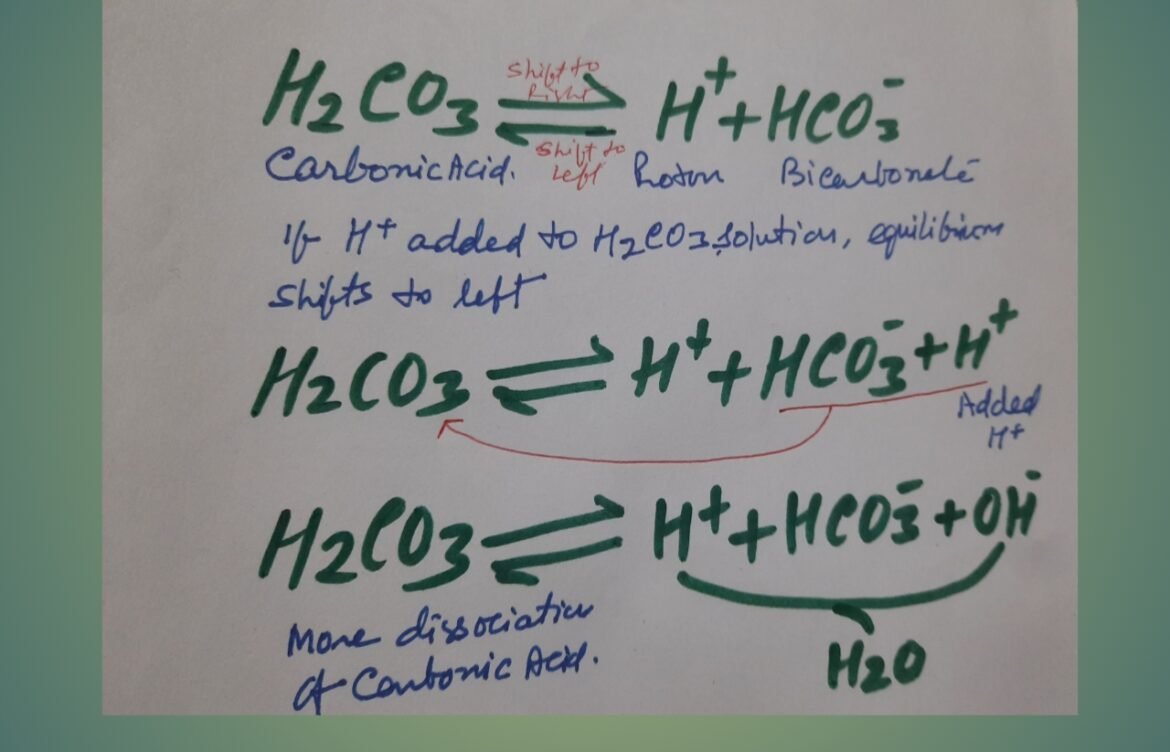 Shift to
Right
H2CO3 ⇌ H⁺ + HCO3⁻
Shift to
left
Carbonic Acid. Proton Bicarbonate
If H⁺ added to H2CO3 solution, equilibrium
shifts to left
H2CO3 ⇌ H⁺ + HCO3⁻ + H⁺
Added
H⁺
H2CO3 ⇌ H⁺ + HCO3⁻ + OH⁻
More dissociation
of Carbonic Acid.
H2O